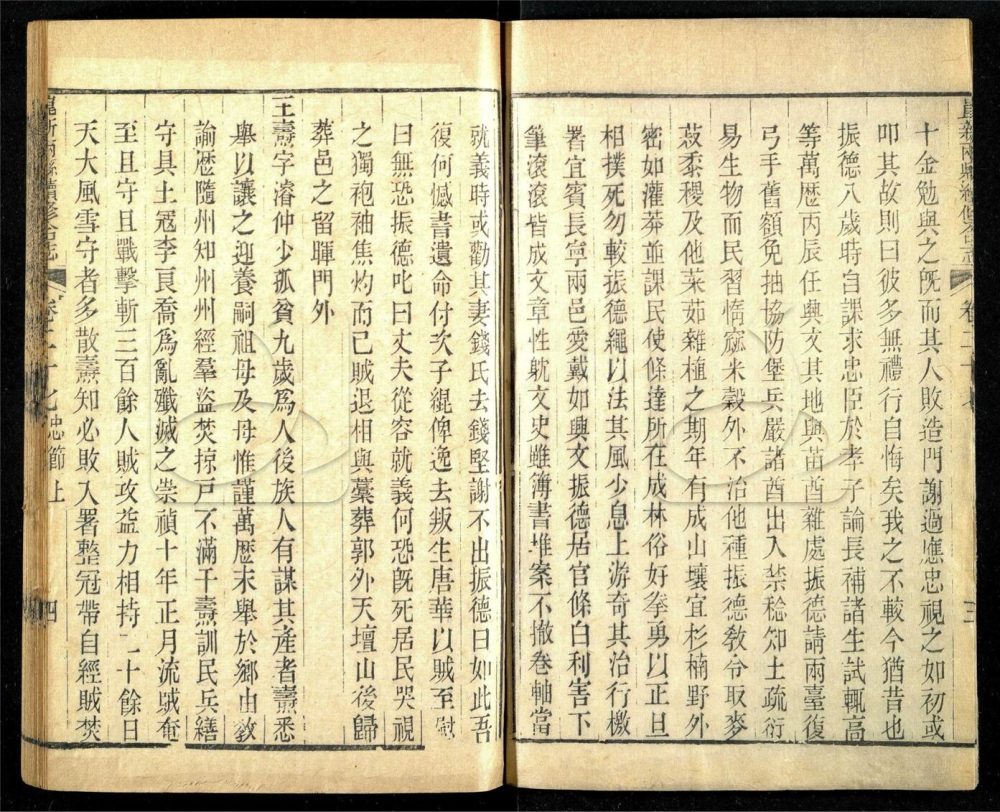 十金勉與之旣而其人敗造門謝過應忠視之如初或
叩其故則曰彼多無禮行自悔矣我之不較今猶昔也
振德八歲時自課求忠臣於孝子論長補諸生試輒高
等萬歷丙辰任興文其地與苗酋雜處振德請兩臺復
弓手舊額免抽協防堡兵嚴諸酋出入禁稔知土疏衍
易生物而民習惰窳米穀外不治他種振德敎令取麥
菽黍稷及他菜茹雜植之期年有成山壤宜杉楠野外
密如灌莽並課民使條達所在成林俗好拳勇以正旦
相撲死勿較振德繩以法其風少息上游奇其治行檄
署宜賓長寧兩邑愛戴如興文振德居官條白利害下
筆滾滾皆成文章性躭文史雖簿書堆案不撤卷軸當
卷二十七
三
就義時或勸其妻錢氏去錢堅謝不出振德曰如此吾
復何憾書遺命付次子緄俾逸去叛生唐華以賊至慰
曰無恐振德叱曰丈夫從容就義何恐旣死居民哭視
之獨袍袖焦灼而已賊退相與藁葬郭外天壇山後歸
葬邑之留暉門外
王燾字濬仲少孤貧九歲爲人後族人有謀其產者燾悉
舉以讓之迎養嗣祖母及母惟謹萬歷末舉於鄉由敎
諭歷隨州知州州經羣盜焚掠戸不滿千燾訓民兵繕
守具土寇李良喬爲亂殲滅之崇禎十年正月流賊奄
至且守且戰擊斬三百餘人賊攻益力相持二十餘日
天大風雪守者多散燾知必敗入署整冠帶自經賊焚
崑新兩縣續修合志
卷二十七
忠節上
四